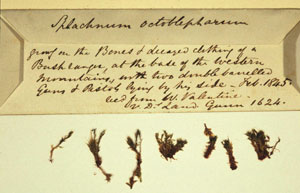 Splachnum octoblepharum
grows on the Bones & decayed clothing of a
Bushranger, at the base of the Western
Mountains, with two double barrelled
Guns & Pistols lying by his side - Feb. 1845.
recd from W. Valentine.
V. D. Land Gunn 1624.